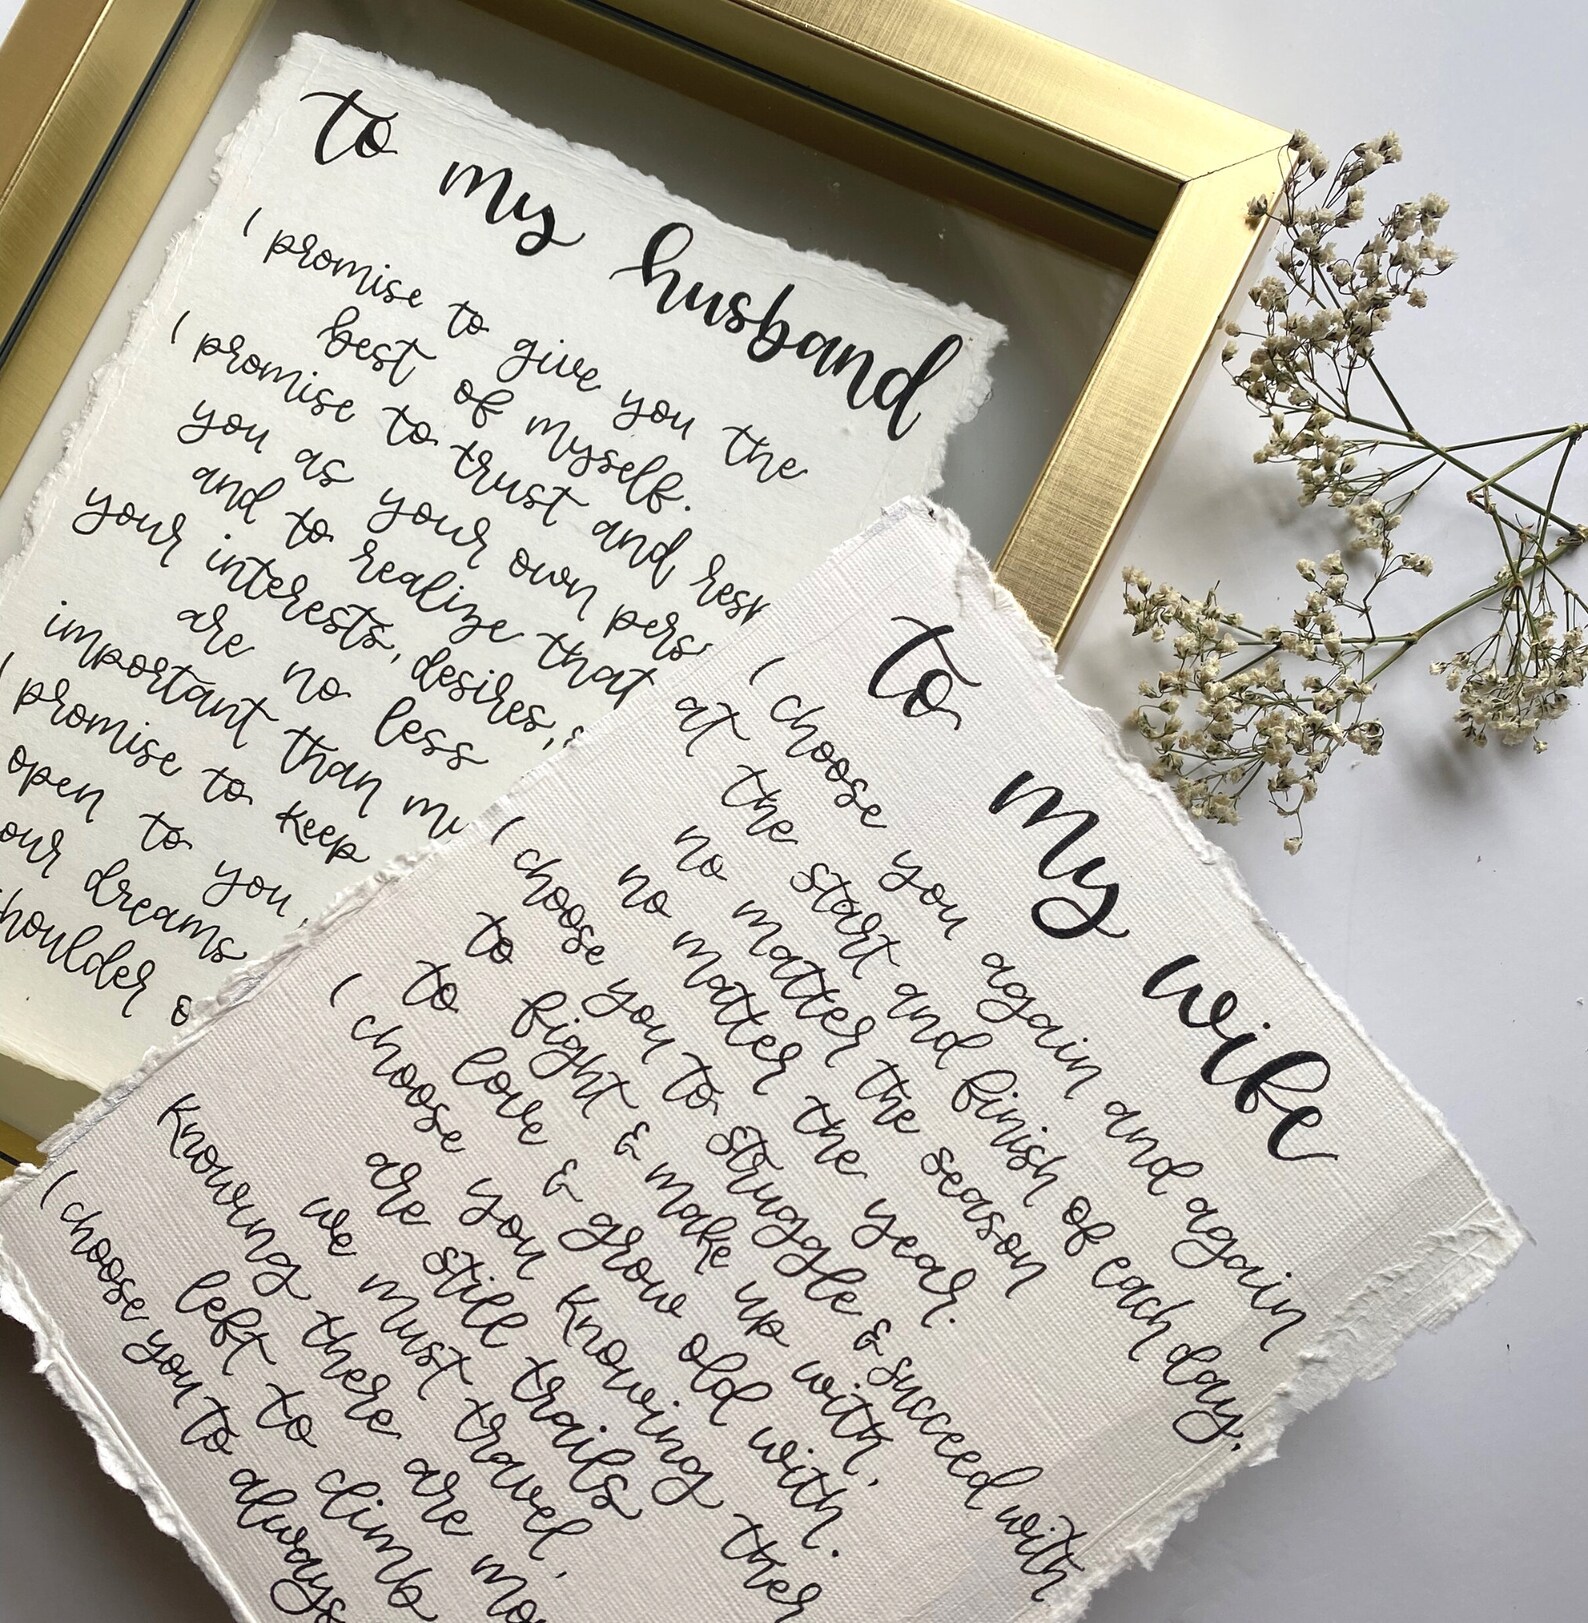 to my husband
I promise to give you the
best of myself.
I promise to trust and
you as your own
and to realize that
your interests, desires,
are no less
important than
I promise to keep
open to you,
our dreams
to my wife
I choose you again and again
at the start and finish of each day,
no matter the season
no matter the year.
I choose you to struggle & succeed with
to fight & make up with,
to love & grow old with.
I choose you knowing
are still trails
we must travel,
Knowing there are
left to climb
I choose you to always